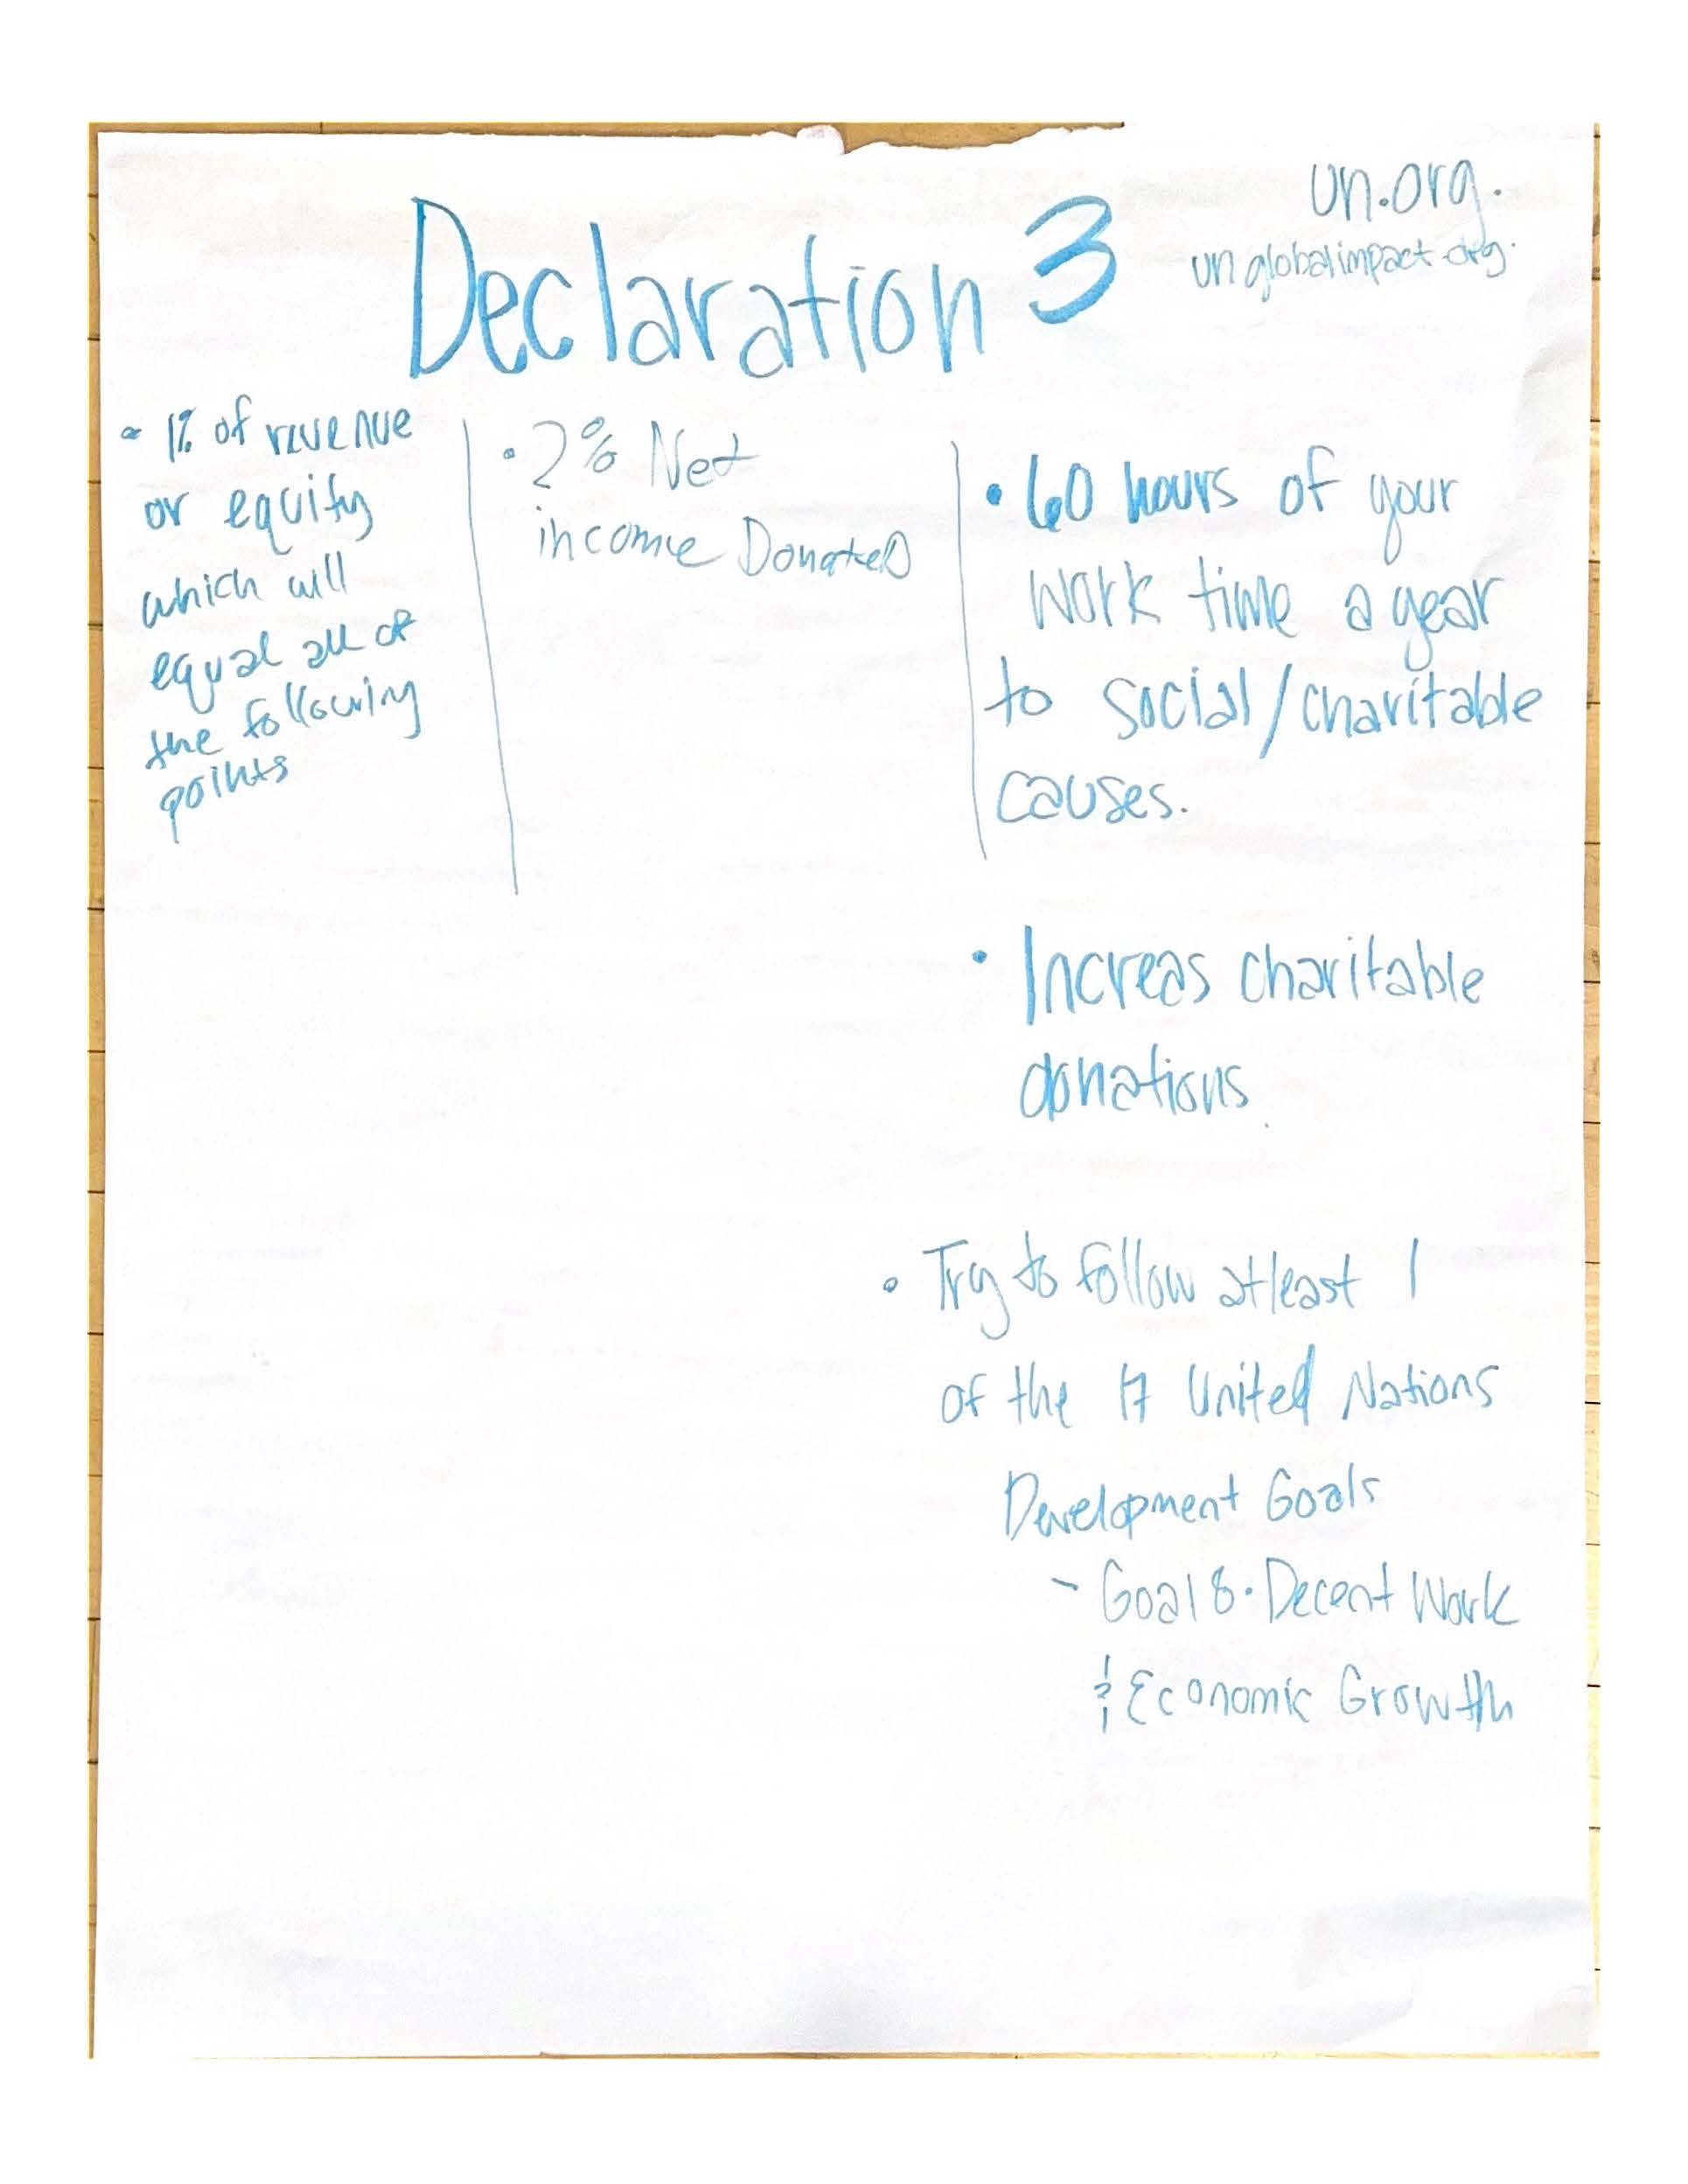 un.org.
unglobalimpact.org.
Declaration 3
• 1% of revenue
or equity
which will
equal all of
the following
points
• 2% Net
income Donated
• 60 hours of your
work time a year
to social/charitable
causes.
• Increas charitable
donations
• Try to follow atleast 1
of the 17 United Nations
Development Goals
- Goal 8. Decent Work
& Economic Growth